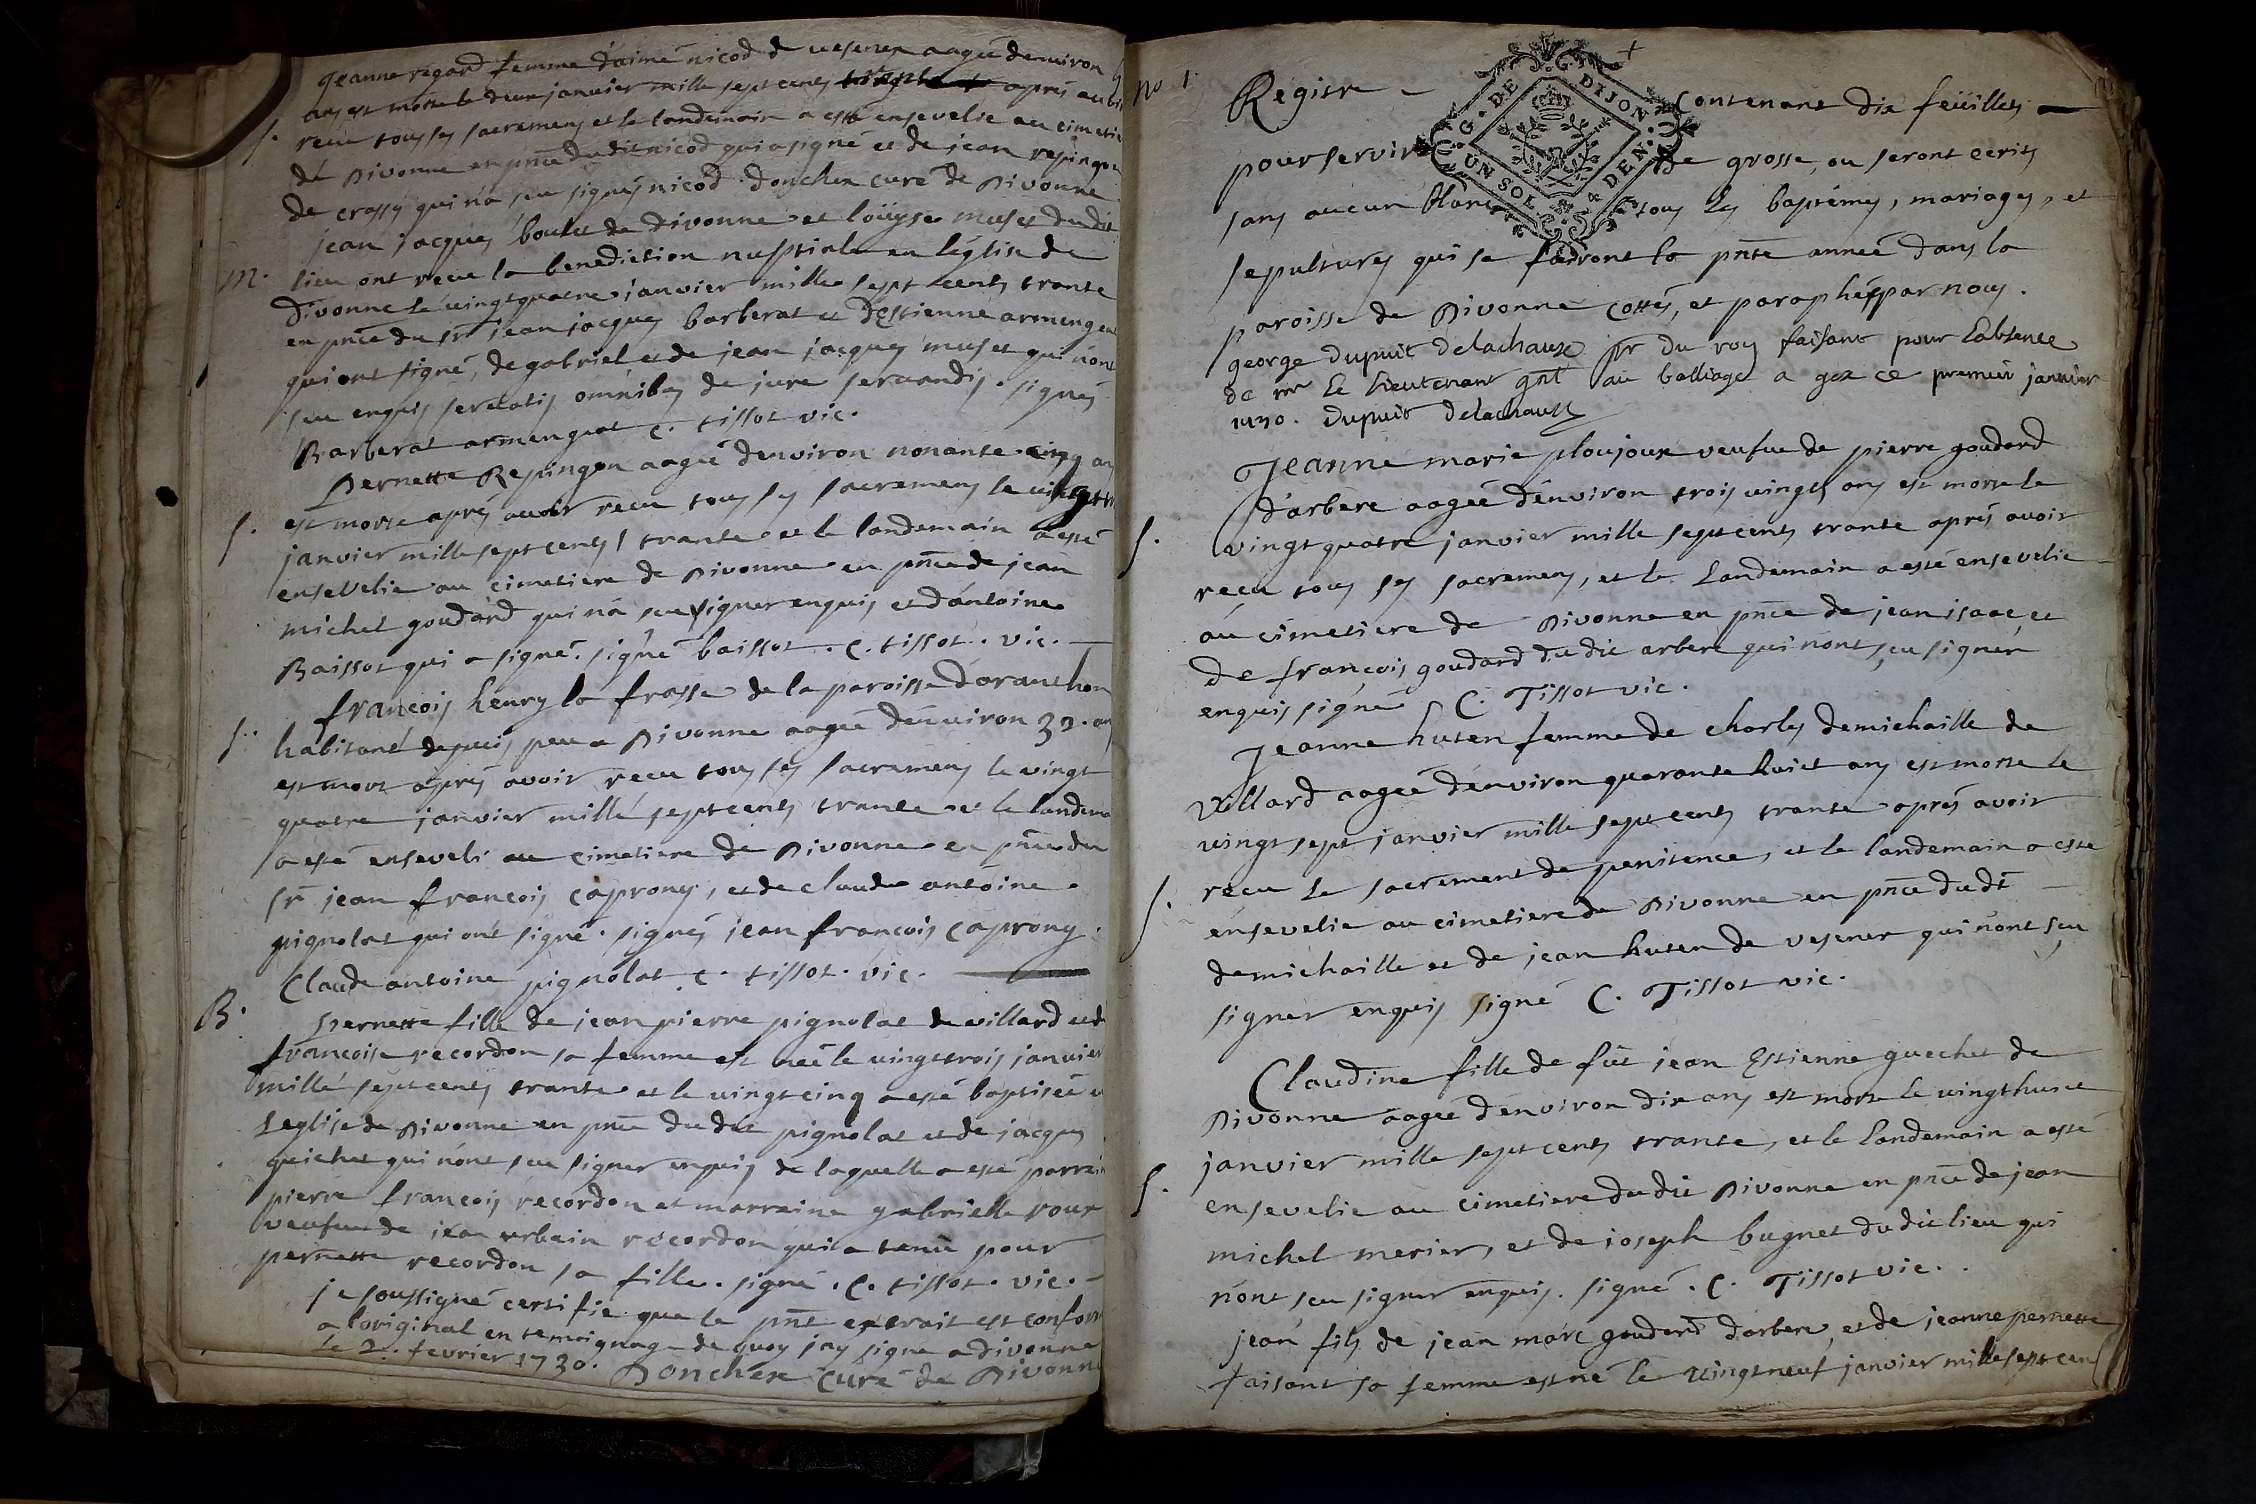 Jeanne regard femme d'aimé nicod de uesenex aagée denuiron
ans est morte le deux januier mille sept cents apres auoir
S. receu tous ses sacremens et le landemain a esté enseuelie au cimetie
de Diuonne en pnce dudit nicod qui a signé et de jean repingon
de crassy qui n'a sçeu signés nicod. donchex curé de Diuonne
jean jacques boulet de diuonne et loüyse muset dudit
M. lieu ont receu la benediction nuptiale en l'église de
diuonne le uingtquatre januier mille sept cents trante
en pnce du sr jean jacques barberat et d'estienne armengeat
qui ont signé, de gabriel et de jean jacques muset qui n'ont
sceu enquis seruatis omnibus de jure seruandis. signés
Barberat armengeat c. tissot vic.
Pernette Repingon aagée denuiron nonante cinq ans
S. est morte aprés auoir receu tous ses sacremens le
januier mille sept cents trante et le landemain a esté
enseuelie au cimetiere de Diuonne en pnce de jean
michel goudard qui n'a sceu signer enquis et d'antoine
Baissot qui a signé. signé baissot. c. tissot. vic.
françois henry la frasse de la paroisse d'aranthon
S. habitant depuis peu a Diuonne aagée denuiron 32. ans
est mort aprés auoir receu tous ses sacremens le vingt
quatre januier mille sept cents trante et le landema
a esté enseueli au cimetiere de Diuonne en pnce du
sr jean françois caprony, et de claude antoine
pignolat qui ont signé. signés jean françois caprony.
Claude antoine pignolat c. tissot. vic.
B. Pernette fille de jean pierre pignolat de uillard et de
françoise recordon sa femme est née le uingttrois januier
mille sept cents trante et le uingtcinq a esté baptisée e
L'eglise de Diuonne en pnce dudit pignolat et de jacques
guichet qui n'ont sceu signer enquis de laquelle a esté parrai
pierre françois recordon et marraine gabrielle roux
veufue de jean urbain recordon qui a tenu pour
pernette recordon sa fille. signé. C. tissot. vic.
je soussigné certifie que le pnt extrait est conforme
a l'original en temoignage de quoy j'ay signé a diuonne
le 2. feurier 1730. Donchex Curé de Diuonne
No 1.
Registre contenant dix feüillets
G. G. DE DIJON
UN SOL. 4 DEN.
pour seruir de grosse, ou seront ecrits
sans aucun blanc tous les baptémes, mariages, et
sepultures qui se fairont la pnte année dans la
paroisse de Diuonne cottés, et paraphés par nous.
george dupuit delachaux pr du roy faisant pour l'absence
de mr le lieutenant gnl au balliage a gex ce premier januier
1730. dupuit delachaux
Jeanne marie ploujoux veufue de pierre goudard
d'arbere aagée d'enuiron trois uingts ans est morte le
S. vingt quatre januier mille sept cents trante aprés auoir
receu tous ses sacremens, et le Landemain a esté enseuelie
au cimetiere de Diuonne en pnce de jean isaac et
de françois goudard du dit arbere qui n'ont sceu signer
enquis signé C. Tissot vic.
Jeanne huten femme de charles demichaille de
Villard aagée d'enuiron quarante huict ans est morte le
uingt sept januier mille sept cents trante aprés auoir
S. receu le sacrement de penitence, et le landemain a esté
enseuelie au cimetiere de Diuonne en pnce du dt
demichaille et de jean huten de vesener qui n'ont sçeu
signer enquis signé C. Tissot vic.
Claudine fille de fût jean Estienne guechet de
Diuonne aagée d'enuiron dix ans est morte le uingthuict
januier mille sept cents trante, et le landemain a esté
S. enseuelie au cimetiere du dit Diuonne en pnce de jean
michel merier, et de joseph bugnet du dit lieu qui
n'ont sceu signer enquis. signé. C. Tissot vic.
jean fils de jean marc goudard d'arbere, et de jeanne pernette
taisant sa femme est né le vingt neuf januier mille sept cen